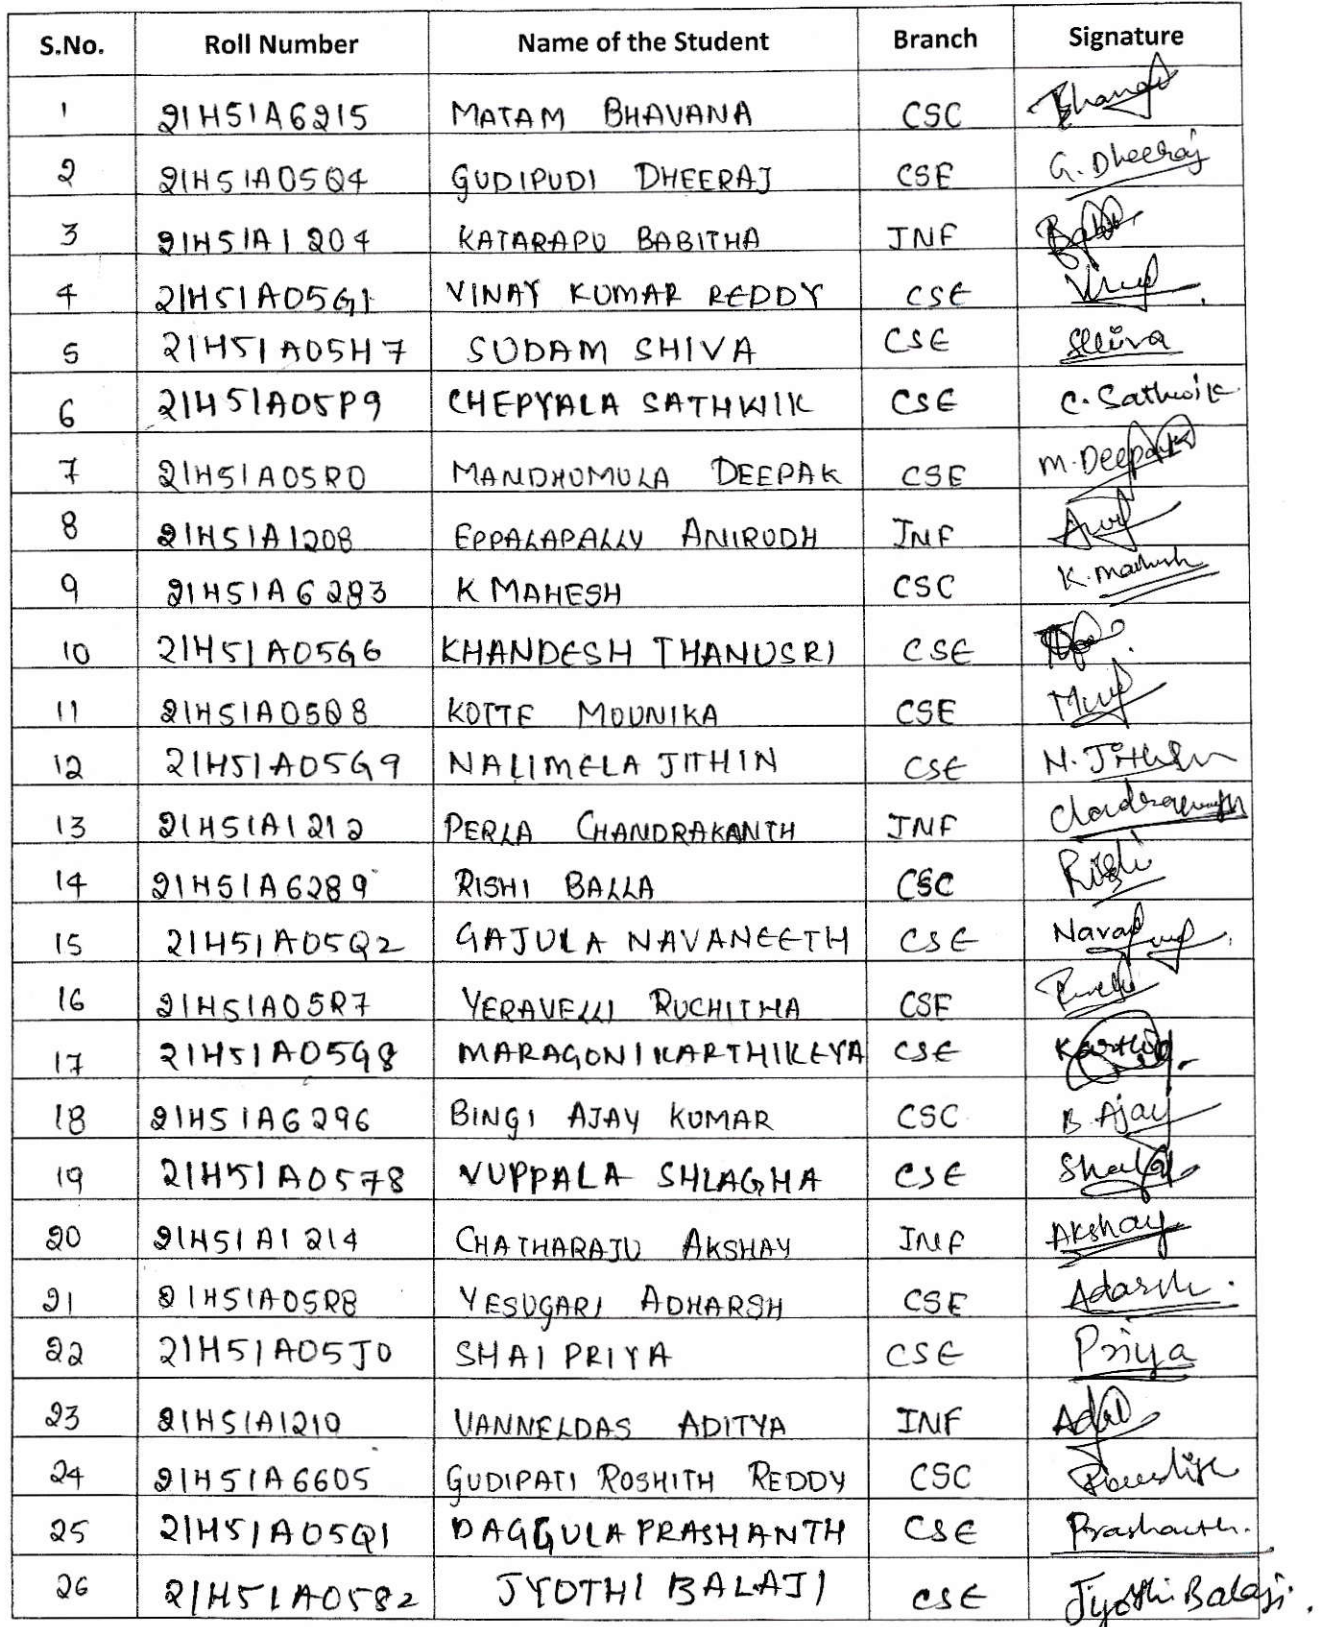 S.No. Roll Number Name of the Student Branch Signature
1 21H51A6215 MATAM BHAVANA CSC
2 21H51A05Q4 GUDIPUDI DHEERAJ CSE G. Dheeraj
3 21H51A1204 KATARAPU BABITHA INF
4 21H51A05G1 VINAY KUMAR REDDY CSE
5 21H51A05H7 SUDAM SHIVA CSE Shiva
6 21H51A05P9 CHEPYALA SATHWIK CSE C. Sathwik
7 21H51A05R0 MANDHUMULA DEEPAK CSE M. Deepak
8 21H51A1208 EPPALAPALLY ANIRUDH INF
9 21H51A6283 K MAHESH CSC K. Mahesh
10 21H51A05G6 KHANDESH THANUSRI CSE
11 21H51A05Q8 KOTTE MOUNIKA CSE
12 21H51A05G9 NALIMELA JITHIN CSE N. Jithin
13 21H51A1212 PERLA CHANDRAKANTH INF
14 21H51A6289 RISHI BALLA CSC Rishi
15 21H51A05Q2 GAJULA NAVANEETH CSE
16 21H51A05R7 YERAVELLI RUCHITHA CSE
17 21H51A05G8 MARAGONI KARTHIKEYA CSE
18 21H51A6296 BINGI AJAY KUMAR CSC B Ajay
19 21H51A0578 VUPPALA SHLAGHA CSE
20 21H51A1214 CHATHARAJU AKSHAY INF Akshay
21 21H51A05R8 YESUGARI ADHARSH CSE Adarsh.
22 21H51A05J0 SHAI PRIYA CSE Priya
23 21H51A1210 VANNELDAS ADITYA INF
24 21H51A6605 GUDIPATI ROSHITH REDDY CSC
25 21H51A05Q1 DAGGULA PRASHANTH CSE Prashanth.
26 21H51A0582 JYOTHI BALAJI CSE Jyothi Balaji.